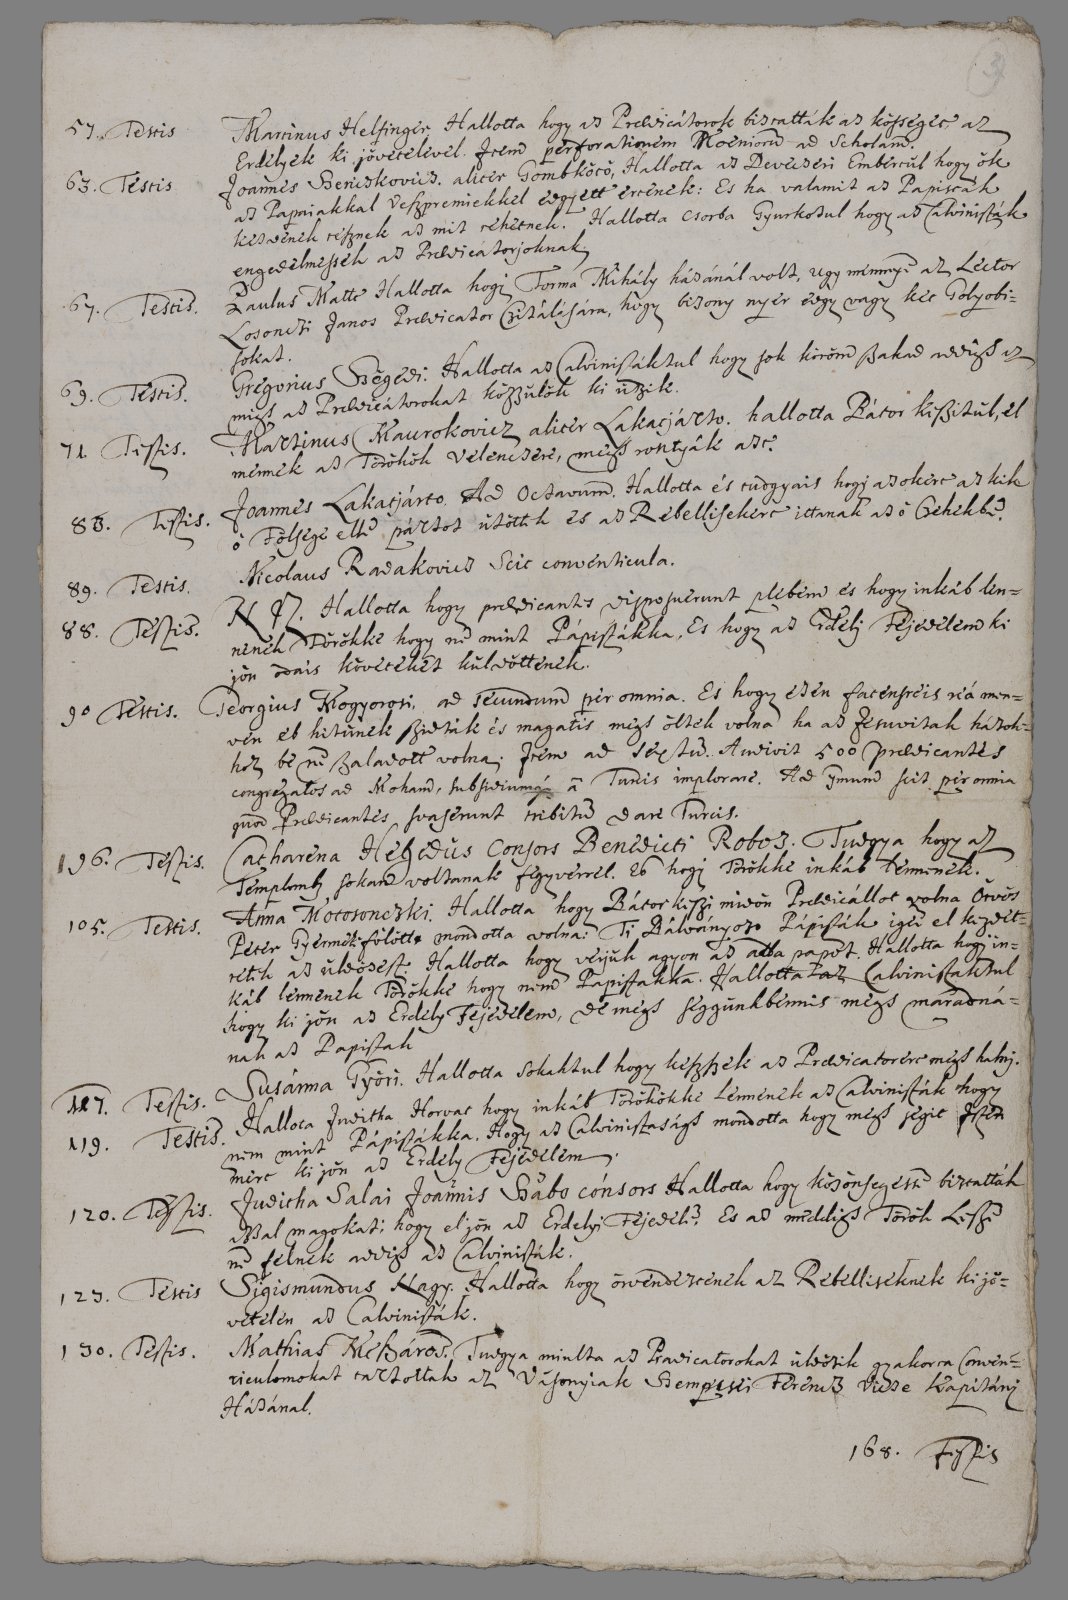 3
57. Testis Martinus Helfinger, Hallotta hogy az Predicátorok biztatták az kösséget az
Erdélyiek ki jövetelével. Item perforationem Moeniorum ad Scholam.
63. Testis Joannes alitér Gombkötö, Hallotta az Devecseri Embertül hogy ök
az Papaiakkal Veszpremiekkel edgyett értenek: Es ha valamit az Papisták
kezdenek tésznek az mit tehetnek. Hallotta Csorba Gyurkotul hogy az Calvinisták
engedelmessek az Predicátorjoknak
67. Testis. Paulus Matte Hallotta hogy Torma Mihály házánál volt, ugy mennyen az Lector
Losonczi Janos Predicator Czitálására, hogy bizony nyer edgy vagy két Golyobi-
sokat.
69. Testis. Gregorius Szegedi. Hallotta az Calvinistáktul hogy sok köröm szakad addigh az
migh az Predicátorokat közzülök ki üzik.
71 Testis. Martinus Maurokovicz alitér Lakatjárto. hallotta Bátor Kiszitül, el
mennek az Törökök Velenczére, meg rontyák azt.
86. Testis. Joannes Lakatjárto. Ad Octavum. Hallotta és tudgyais hogy azokért az kik
ö Fölsége ellen pártot ütöttek és az Rebellisekért ittanak az ö Czehekben.
89. Testis. Nicolaus Radakovics Scit conventicula.
88. Testis. N N. Hallotta hogy predicantes disposuerunt plebem és hogy inkáb len-
nének Törökké hogy nem mint Pápistákka, Es hogy az Erdély Fejedelem ki
jön odais követeket küldöttenek.
90 Testis. Georgius Mogyorosi, ad secundum per omnia. Es hogy ezen fatenstéis reá men-
vén eb hitünek szidták és magatis megh ölték volna ha az Jesuvitak házok-
hoz be nem szaladott volna. Item ad sextum. Audivit 500 predicantes
congregatos ad Moham, subsidiumq á Turcis implorare. Ad scit per omnia
quod Predicantes svaserunt tributum dare Turcis.
196. Testis. Catharena consors Benedicti Robos. Tudgya hogy az
Templomb sokan voltanak fegyverrel. Es hogy Törökké inkáb lennének.
105. Testis. Anna Motosonczki. Hallotta hogy Bátor Kiszi midön Predicállot volna Ötvös
Péter Gyermek fölött mondotta volna: Ti Bálványozo Pápisták igen el kezdet-
tétek az üldözést. Hallotta hogy verjük agyon az atta papot. Hallotta hogy in-
káb lennének Törökké hogy nem Papistákka. Hallotta az Calvinistáktul
hogy ki jön az Erdély Fejedelem, de megh seggünkbennis megh maradná-
nak az Papistak
117. Testis. Susánna Györi. Hallotta sokaktul hogy készzek az Predicatorért megh halni.
119. Testis. Hallota Juditha Horvat hogy inkáb Törökökké Lennének az Calvinisták hogy
nem mint Pápistákka. Hogy az Calvinistaságh mondotta hogy megh segit Isten
mert ki jön az Erdély Fejedelem.
120. Testis. Juditha Salai Joannis Szabo consors Hallotta hogy közönsegessen biztatták
azzal magokat; hogy el jön az Erdelyi Fejedelem. Es az meddigh Török Leszen
nem félnek addigh az Calvinisták.
123. Testis Sigismundus Nagy. Hallotta hogy örvendeztenek az Rebelliseknek ki jö-
vetelén az Calvinisták.
130. Testis. Mathias Meszáros. Tudgya miulta az Pradicatorokat üldözik gyakorta Conven-
ticulomokat tartottak az Vásonyiak Ferencz Vicze Kapitány
Házánal.
168. Testis